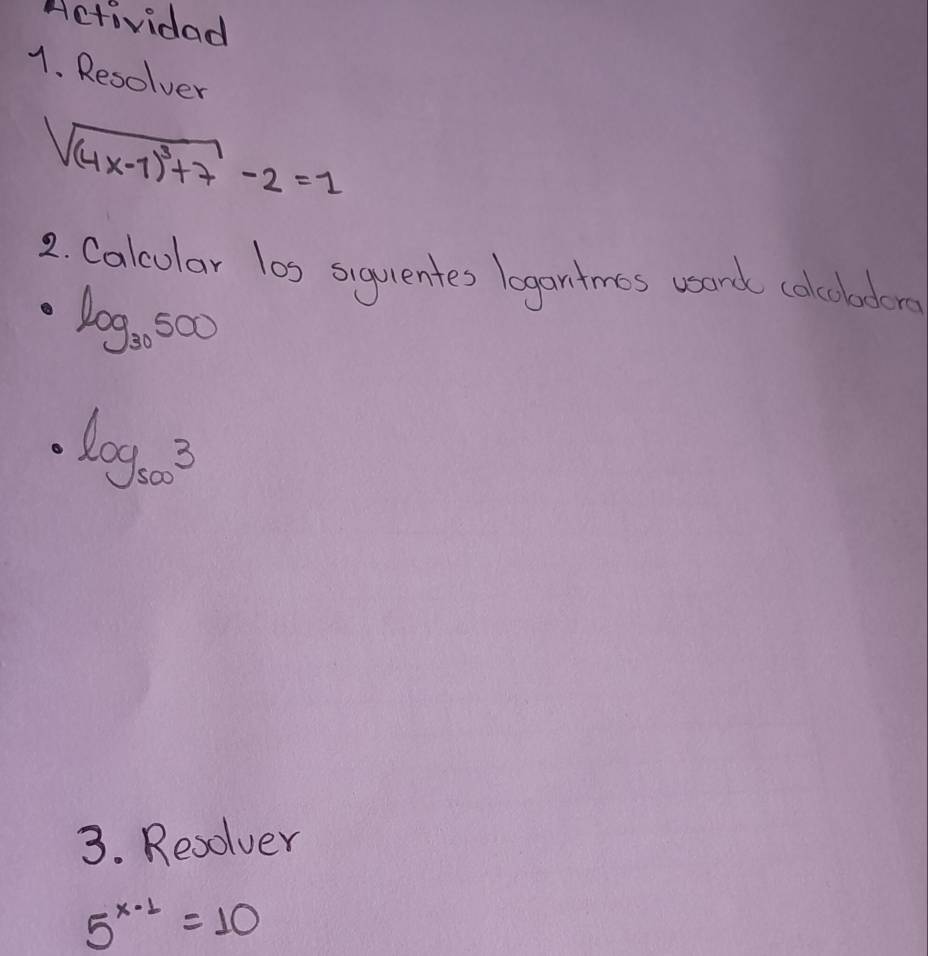 Actividad
1. Resolver
√(4x-1)³+7 -2 = 1
2. Calcular los siguientes logaritmos usando calculadora
• log₃₀ 500
• log₅₀₀ 3
3. Resolver
5ˣ⁻¹ = 10